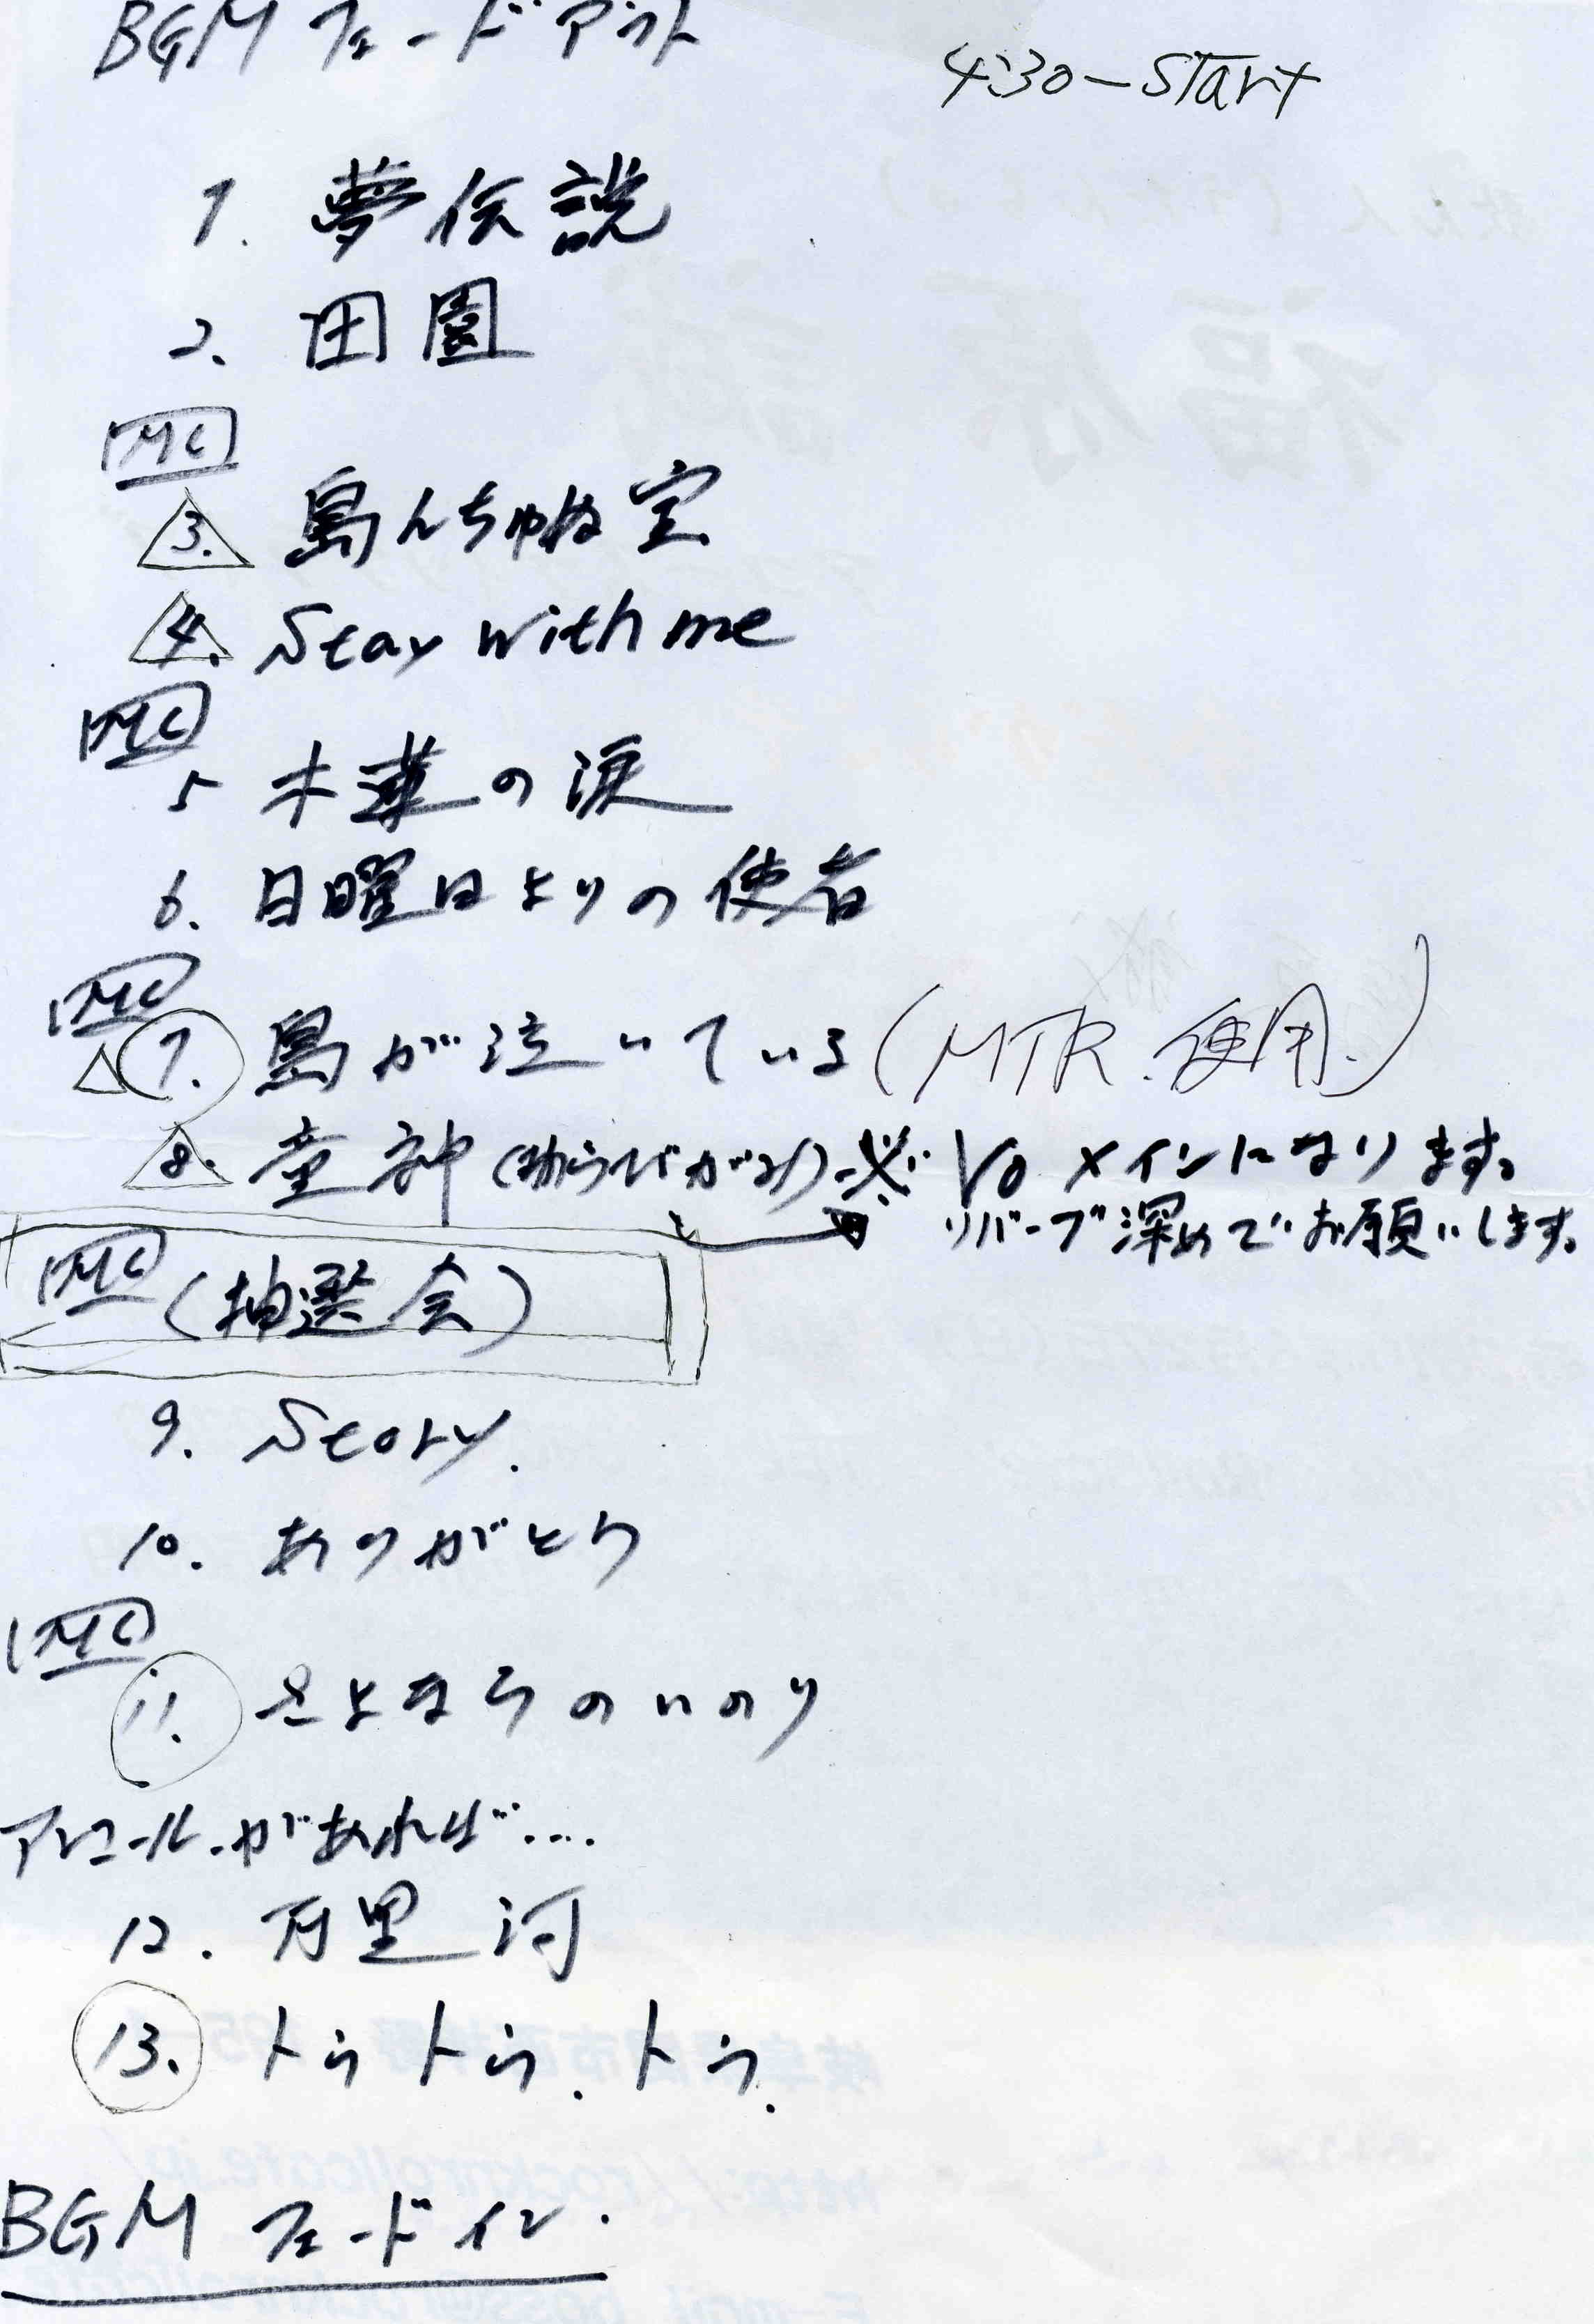 BGM フェードアウト
4:30－Start
1. 夢伝説
2. 田園
MC
3. 島んちゅぬ宝
4. Stay with me
MC
5 木蓮の涙
6. 日曜日よりの使者
MC
7. 島が泣いている (MTR.使用.)
8. 童神 (わらびがみ) ※ Vo メインになります。
リバーブ深めでお願いします。
MC (抽選会)
9. Story.
10. ありがとう
MC
11. さよならのいのり
アンコールがあれば....
12. 万里河
13. トラトラ.トラ.
BGM フェードイン.